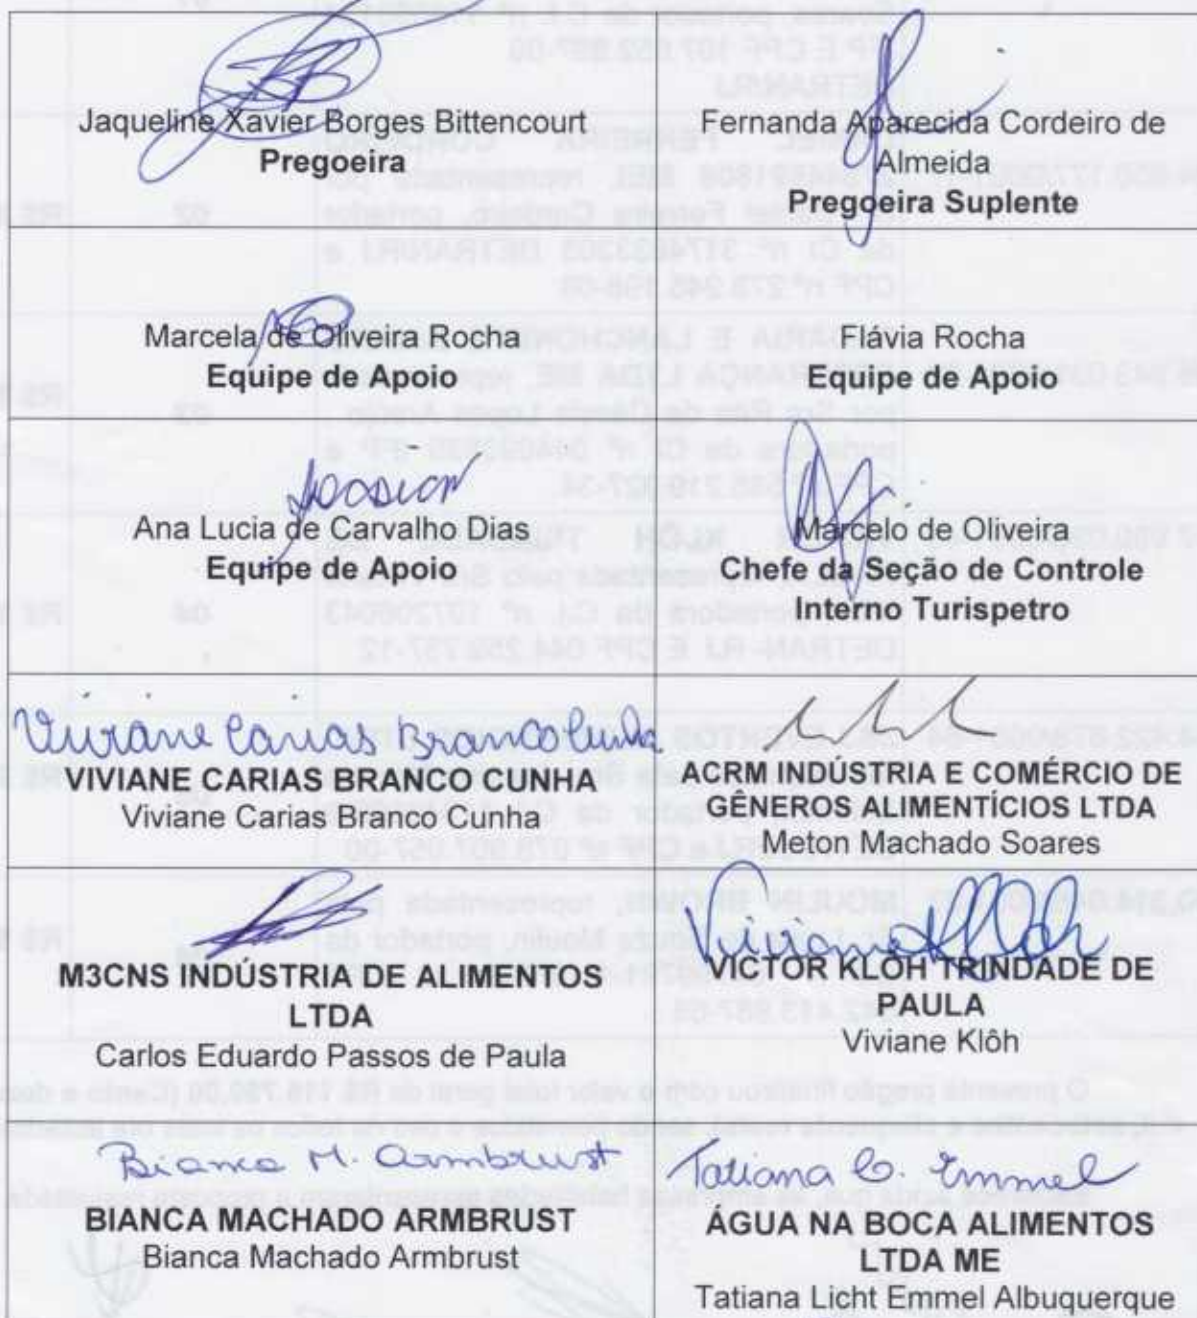 Jaqueline Xavier Borges Bittencourt
Pregoeira
Fernanda Aparecida Cordeiro de
Almeida
Pregoeira Suplente
Marcela de Oliveira Rocha
Equipe de Apoio
Flávia Rocha
Equipe de Apoio
Ana Lucia de Carvalho Dias
Equipe de Apoio
Marcelo de Oliveira
Chefe da Seção de Controle
Interno Turispetro
Viviane Carias Branco Cunha
VIVIANE CARIAS BRANCO CUNHA
Viviane Carias Branco Cunha
ACRM INDÚSTRIA E COMÉRCIO DE
GÊNEROS ALIMENTÍCIOS LTDA
Meton Machado Soares
M3CNS INDÚSTRIA DE ALIMENTOS
LTDA
Carlos Eduardo Passos de Paula
Viviane Klôh
VICTOR KLÔH TRINDADE DE
PAULA
Viviane Klôh
Bianca M. Armbrust
BIANCA MACHADO ARMBRUST
Bianca Machado Armbrust
Tatiana L. Emmel
ÁGUA NA BOCA ALIMENTOS
LTDA ME
Tatiana Licht Emmel Albuquerque